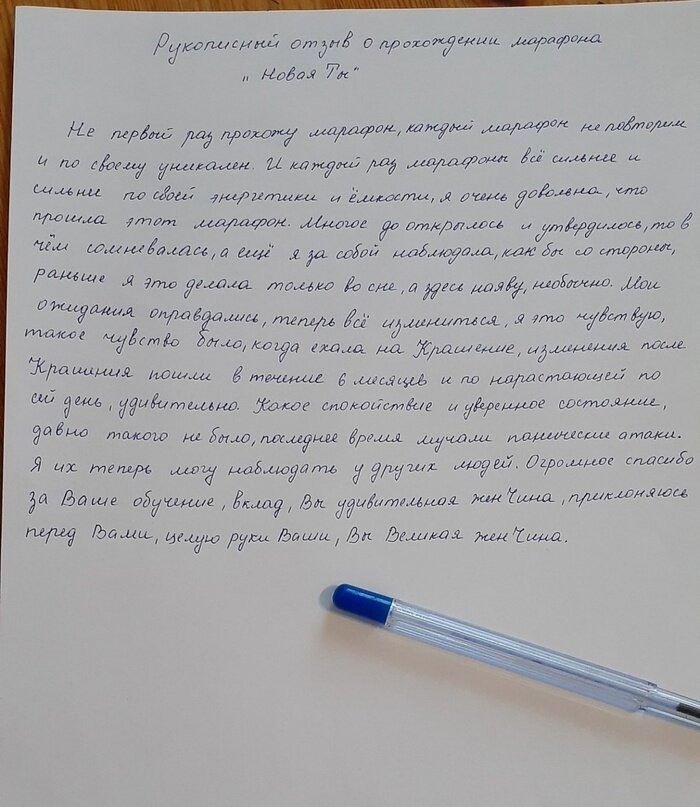 Рукописный отзыв о прохождении марафона
„Новая Ты"
Не первый раз прохожу марафон, каждый марафон не повторим
и по своему уникален. И каждый раз марафоны всё сильнее и
сильнее по своей энергетики и ёмкости, я очень довольна, что
прошла этот марафон. Многое до открылось и утвердилось, то в
чём сомневалась, а ещё я за собой наблюдала, как бы со стороны,
раньше я это делала только во сне, а здесь наяву, необычно. Мои
ожидания оправдались, теперь всё измениться, я это чувствую,
такое чувство было, когда ехала на Крашение, изменения после
Крашения пошли в течение 6 месяцев и по нарастающей по
сей день, удивительно. Какое спокойствие и уверенное состояние,
давно такого не было, последнее время мучали панические атаки.
Я их теперь могу наблюдать у других людей. Огромное спасибо
за Ваше обучение, вклад, Вы удивительная женЧина, приклоняюсь
перед Вами, целую руки Ваши, Вы Великая женЧина.